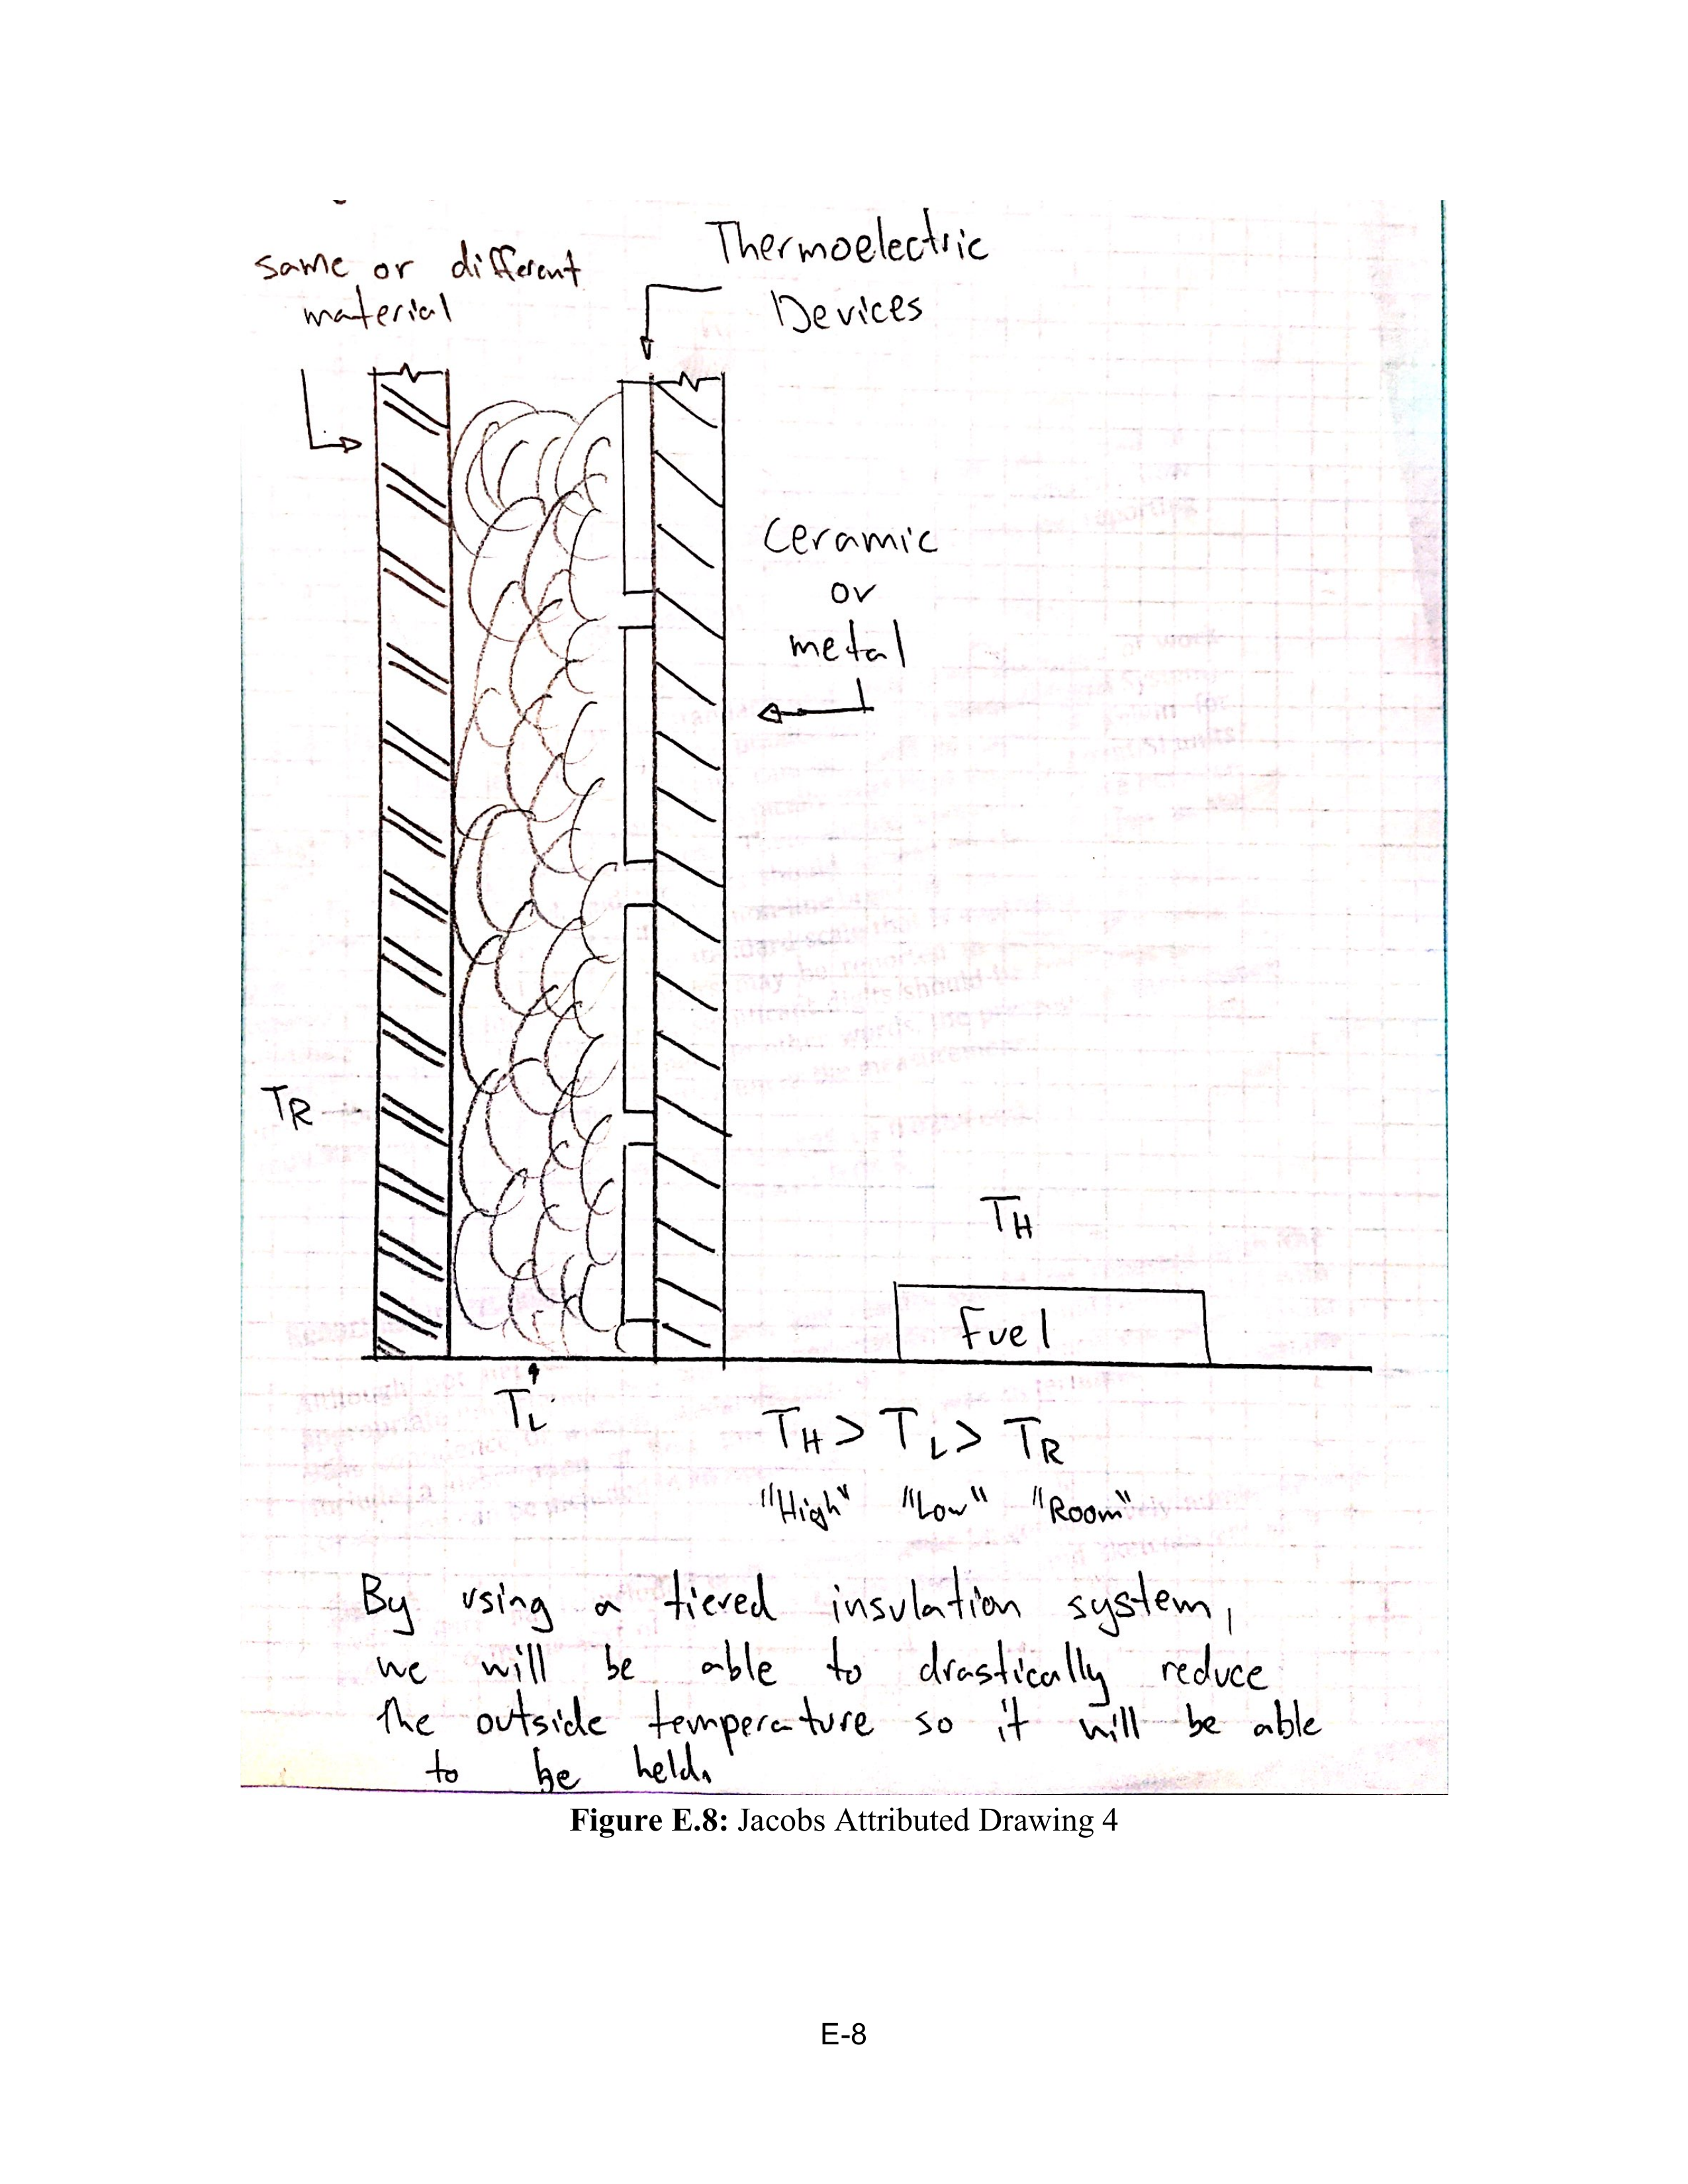 same or different
material
Thermoelectric
Devices
Ceramic
or
metal
TR
TH
Fuel
TL
TH > TL > TR
"High" "Low" "Room"
By using a tiered insulation system,
we will be able to drastically reduce
the outside temperature so it will be able
to be held.
Figure E.8: Jacobs Attributed Drawing 4
E-8